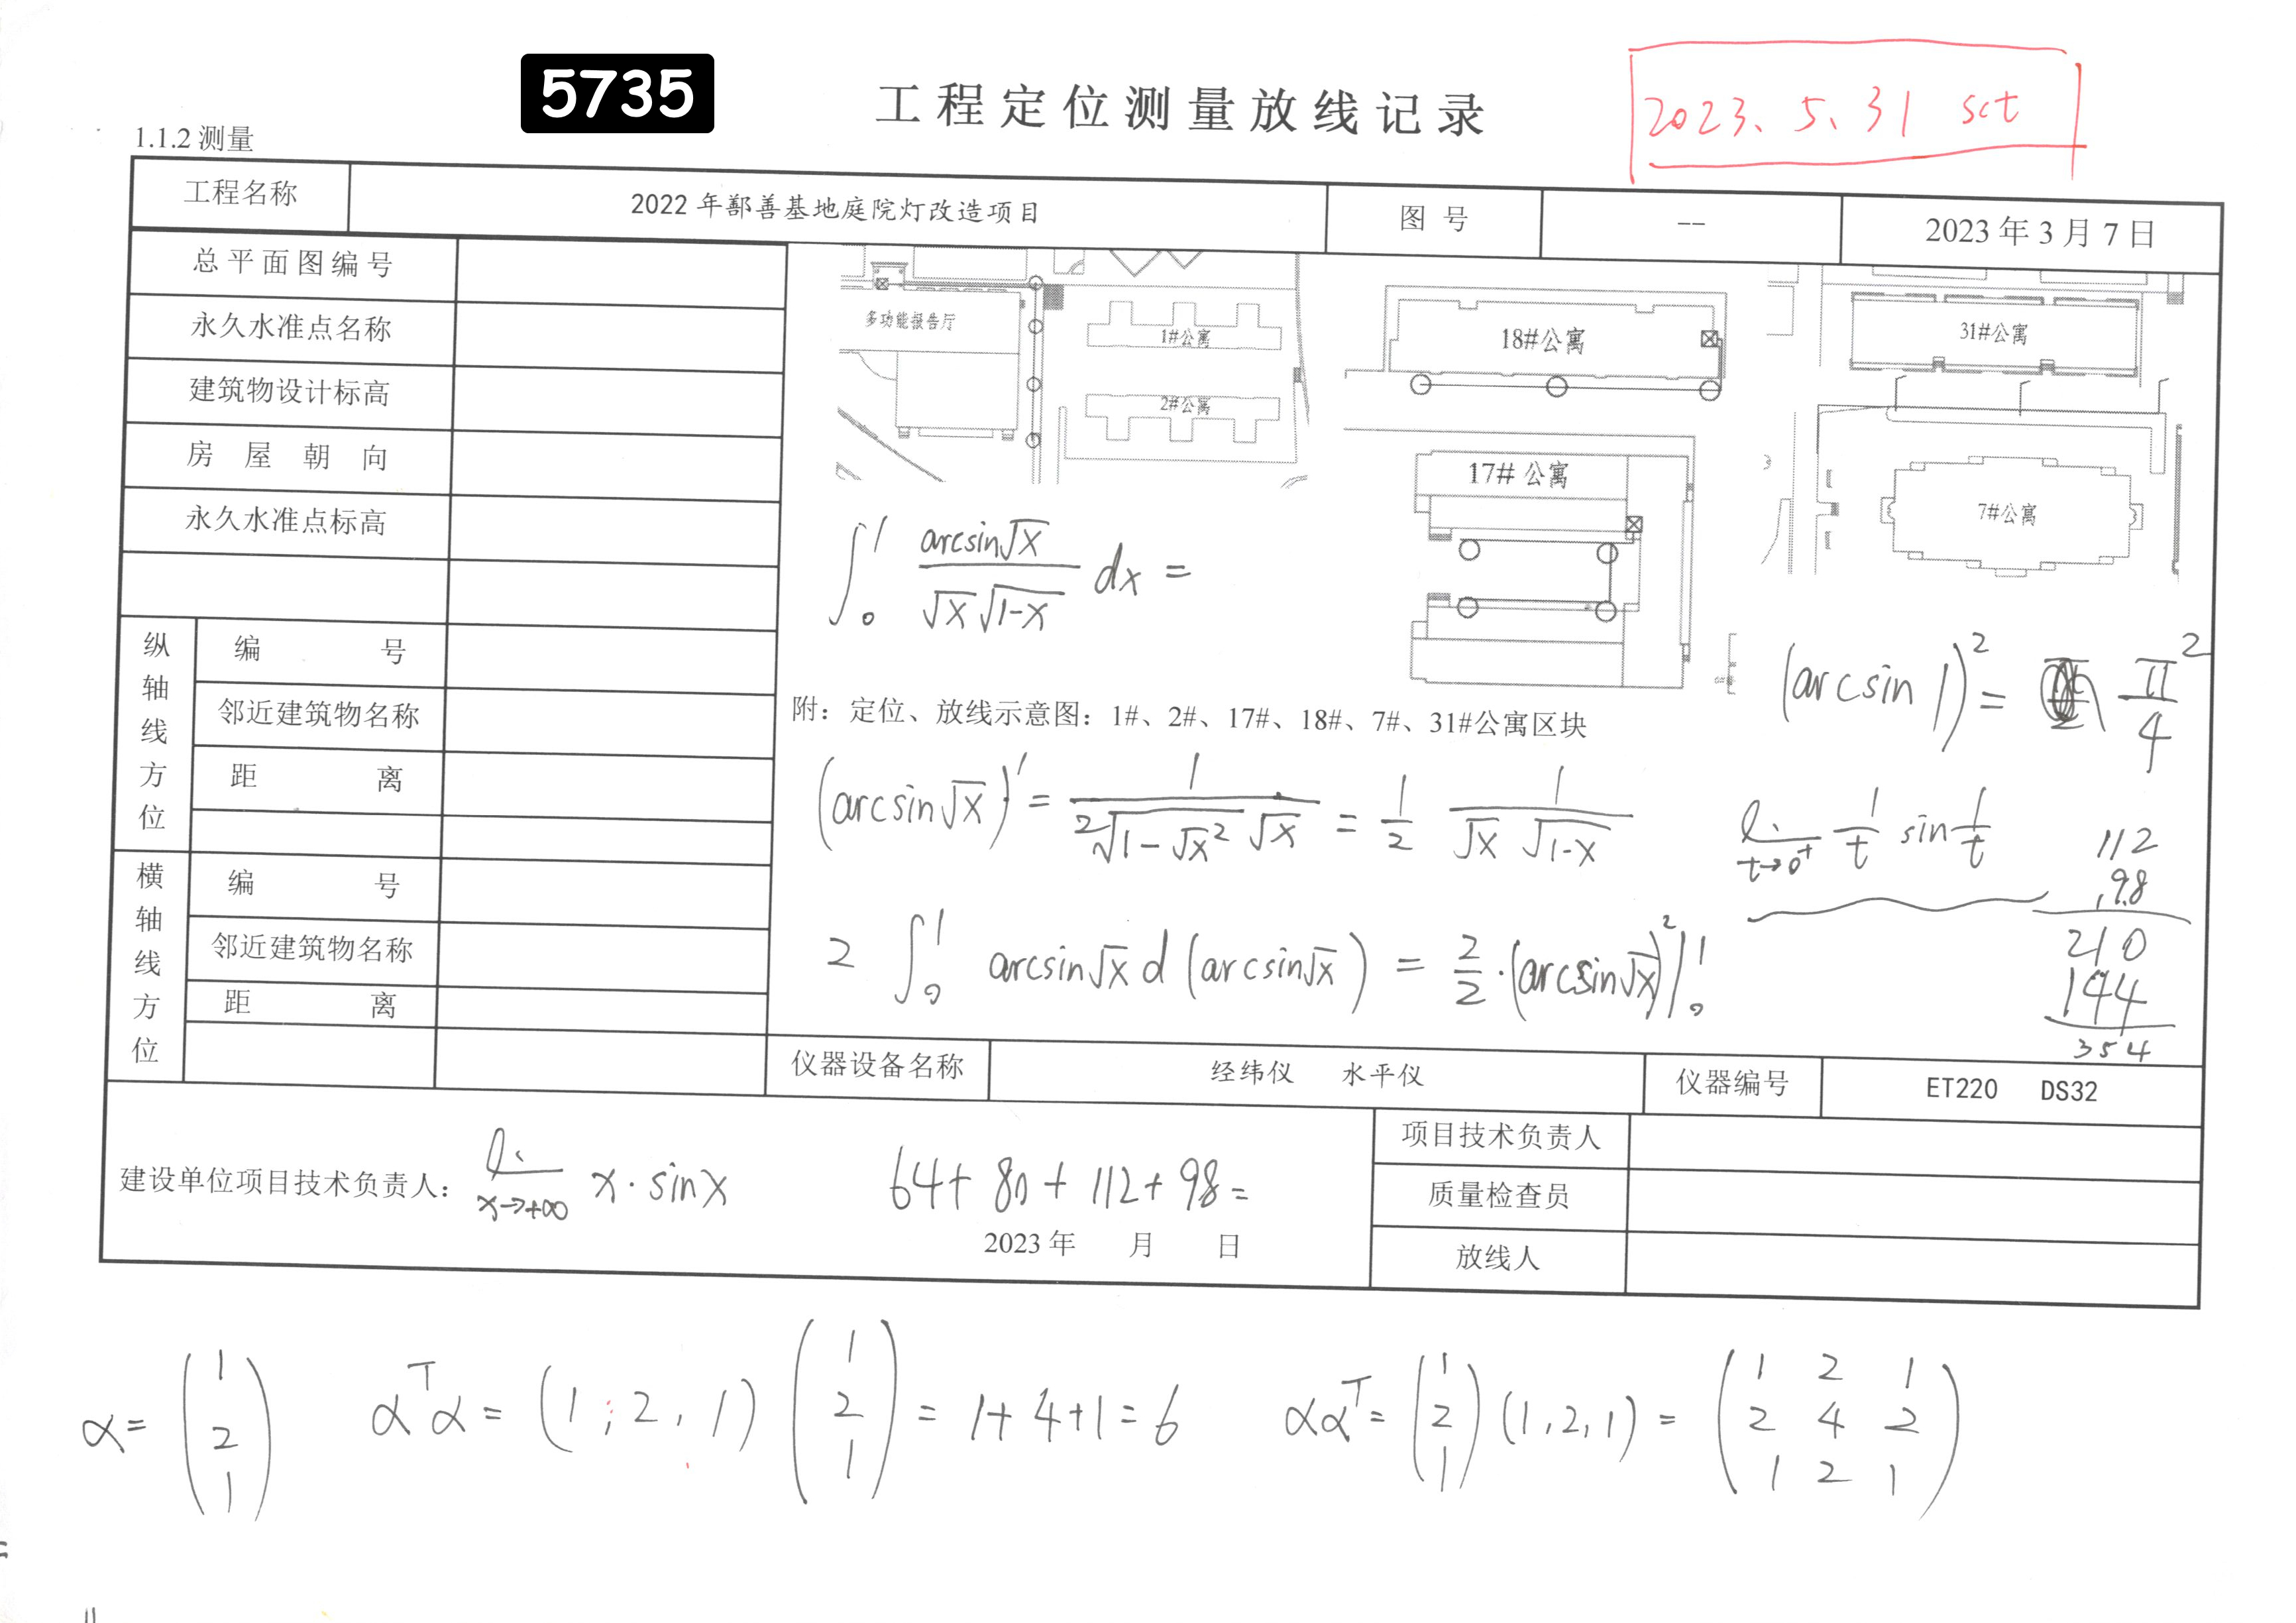 5735
工程定位测量放线记录
2023、5、31 sct
1.1.2 测量
工程名称
2022 年鄯善基地庭院灯改造项目
图 号
--
2023 年 3 月 7 日
总平面图编号
永久水准点名称
建筑物设计标高
房 屋 朝 向
永久水准点标高
纵轴线方位
编 号
邻近建筑物名称
距 离
横轴线方位
编 号
邻近建筑物名称
距 离
多功能报告厅
1#公寓
2#公寓
18#公寓
17# 公寓
31#公寓
7#公寓
∫₀¹ arcsin√x / (√x √(1-x)) dx =
(arcsin 1)² = π²/4
附：定位、放线示意图：1#、2#、17#、18#、7#、31#公寓区块
(arcsin√x)' = 1 / (2√(1-√x²) √x) = 1/2 1 / (√x √(1-x))
t→0⁺ 1/t sin 1/t
2 ∫₀¹ arcsin√x d (arcsin√x) = 2/2 · (arcsin√x)² |₀¹
112
98
210
144
354
仪器设备名称
经纬仪 水平仪
仪器编号
ET220 DS32
建设单位项目技术负责人：
x→+∞ x · sinx
64+ 80 + 112 + 98 =
2023 年 月 日
项目技术负责人
质量检查员
放线人
α = (1 2 1)
αᵀα = (1, 2, 1) (1 2 1) = 1+4+1 = 6
ααᵀ = (1 2 1) (1, 2, 1) =
1 2 1
2 4 2
1 2 1